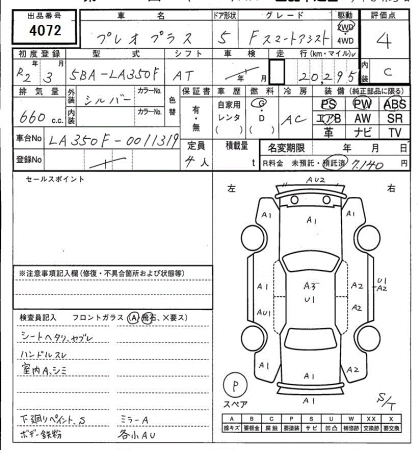 出品番号 車名 ドア形状 グレード 駆動 評価点
4072 プレオプラス 5 Fスマートアシスト 2WD 4WD 4
初度登録 型式 シフト 車検 走行(km・マイル) 内装
R2年3月 5BA-LA350F AT 年 月 20,295 C
排気量 外装 カラーNo. 色替 保証書 車歴 燃料 冷房 装備(純正部品に限る)
660 c.c. シルバー 有・無 自家用 レンタ G・D AC PS PW ABS
内装 カラーNo. エアB AW SR
革 ナビ TV
車台No LA350F-0011319 定員 積載量 名変期限 年 月 日
登録No 4人 t R料金 未預託・預託済 7,140
セールスポイント
左 右
AU2
A1
A1 A1
A1 A3 U1 A2
U1 A2
A1 A2
A1
※注意事項記入欄(修復・不具合箇所および状態等)
検査員記入 フロントガラス(A、飛石、×要ス)
シートヘタリ、ヤブレ
ハンドルスレ
室内A、シミ
P
スペア
S/T
下廻りペイント、S ミラーA
ボデー鉄粉 各小AU
A B C P S U W X XX
線キズ 要板金 腐蝕 要塗装 サビ 凹凸 補修跡 交換跡 要交換